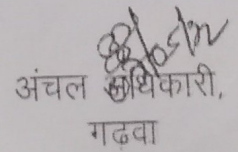 अंचल अधिकारी,
गढवा